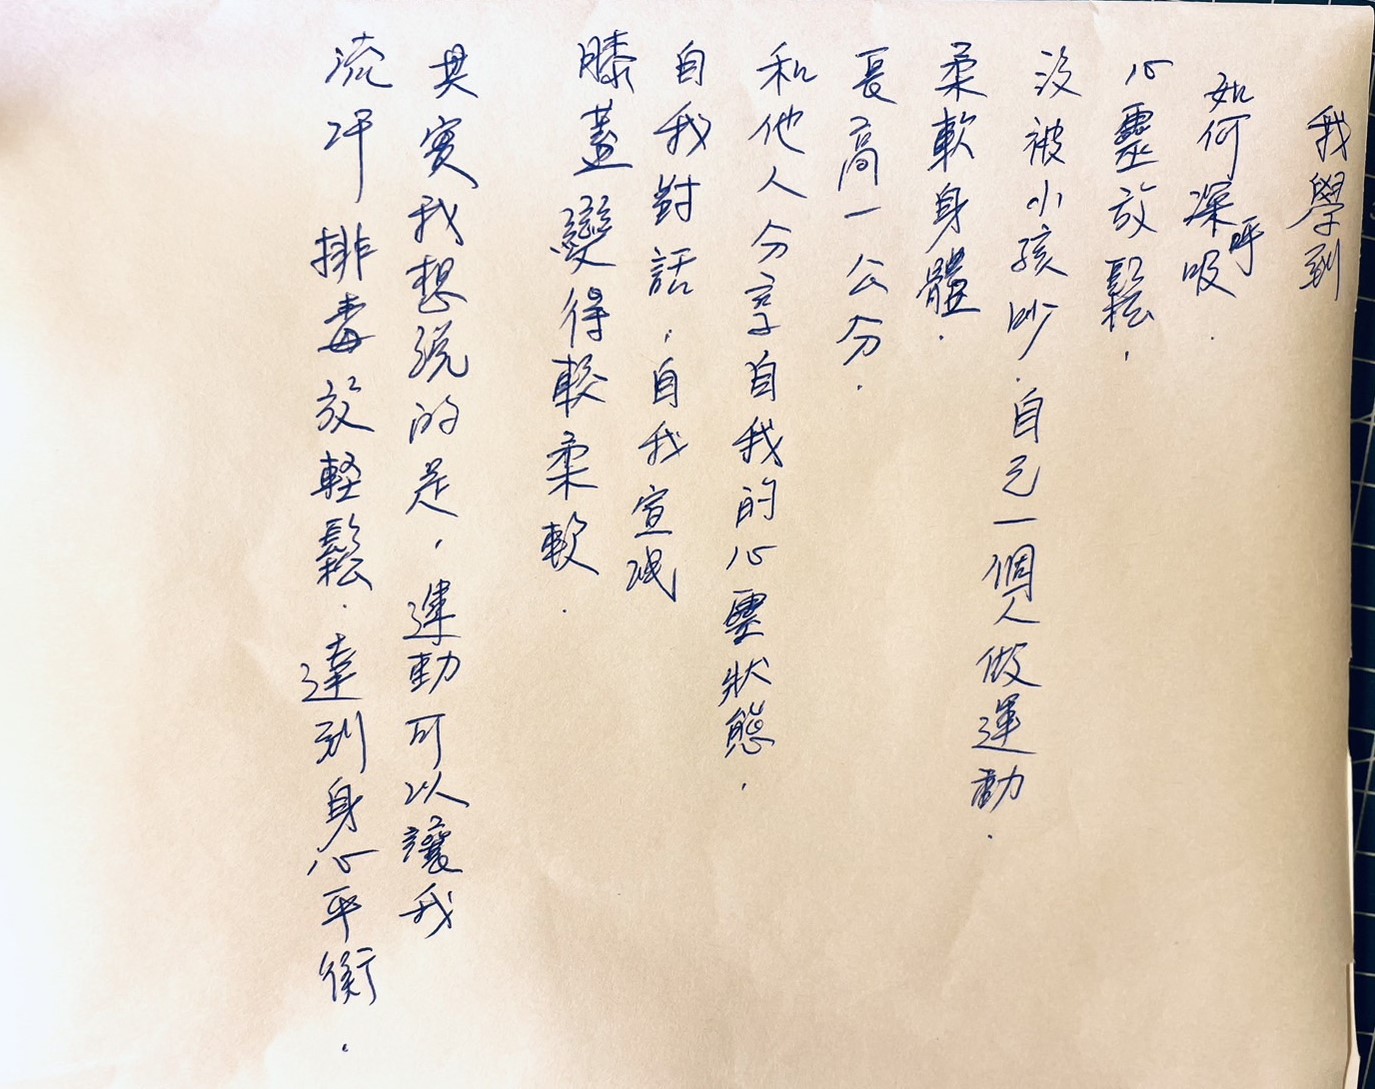 我學到
如何深呼吸.
心靈放鬆,
沒被小孩吵.自己一個人做運動.
柔軟身體.
長高一公分.
和他人分享自我的心靈狀態.
自我對話,自我宣洩
膝蓋變得較柔軟.
其實我想說的是,運動可以讓我
流汗排毒放軽鬆.達到身心平衡.